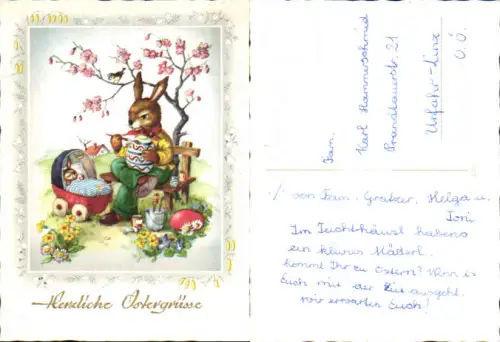 Herzliche Ostergrüsse
Fam.
Karl Hammerschmid
Prandtauerstr. 21
Urfahr-Linz
O.Ö.
./. von Fam. Gruber, Helga u.
Toni
Im habens
ein kleines Mäderl.
kommt Ihr zu Ostern? Wenn es
Euch mit der Zeit ausgeht.
wir erwarten Euch!